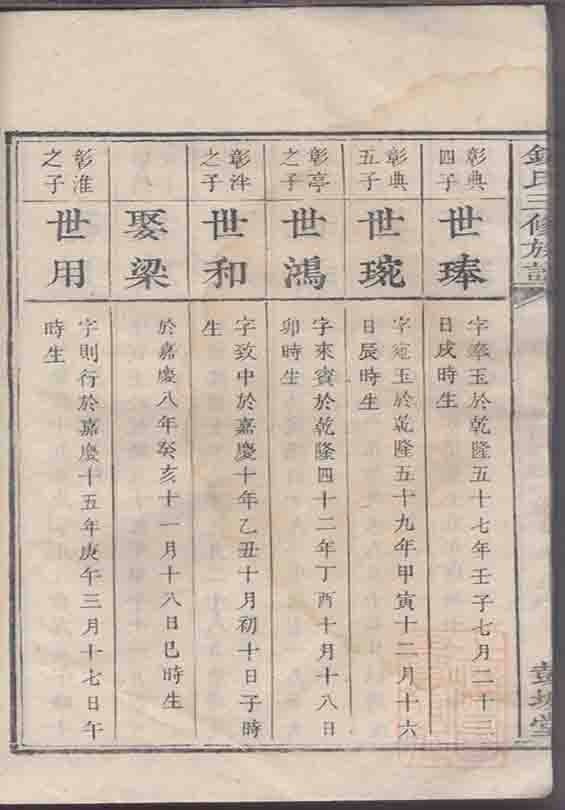 錢氏三修族譜
彭城堂
彰典
四子
世琫
字奉玉於乾隆五十七年壬子七月二十三
日戌時生
彰典
五子
世琬
字宛玉於乾隆五十九年甲寅十二月十六
日辰時生
彰亭
之子
世鴻
字來賓於乾隆四十二年丁酉十月十八日
卯時生
彰泮
之子
世和
字致中於嘉慶十年乙丑十月初十日子時
生
娶梁
於嘉慶八年癸亥十一月十八日巳時生
彰淮
之子
世用
字則行於嘉慶十五年庚午三月十七日午
時生